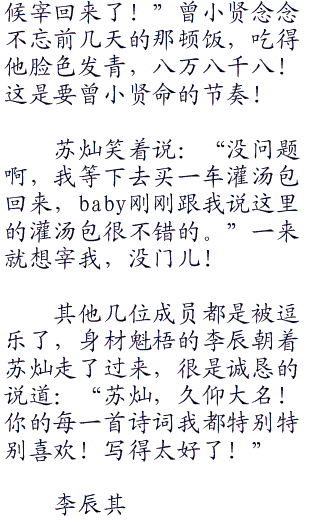 候宰回来了！”曾小贤念念
不忘前几天的那顿饭，吃得
他脸色发青，八万八千八！
这是要曾小贤命的节奏！
苏灿笑着说：“没问题
啊，我等下去买一车灌汤包
回来，baby刚刚跟我说这里
的灌汤包很不错的。”一来
就想宰我，没门儿！
其他几位成员都是被逗
乐了，身材魁梧的李辰朝着
苏灿走了过来，很是诚恳的
说道：“苏灿，久仰大名！
你的每一首诗词我都特别特
别喜欢！写得太好了！”
李辰其